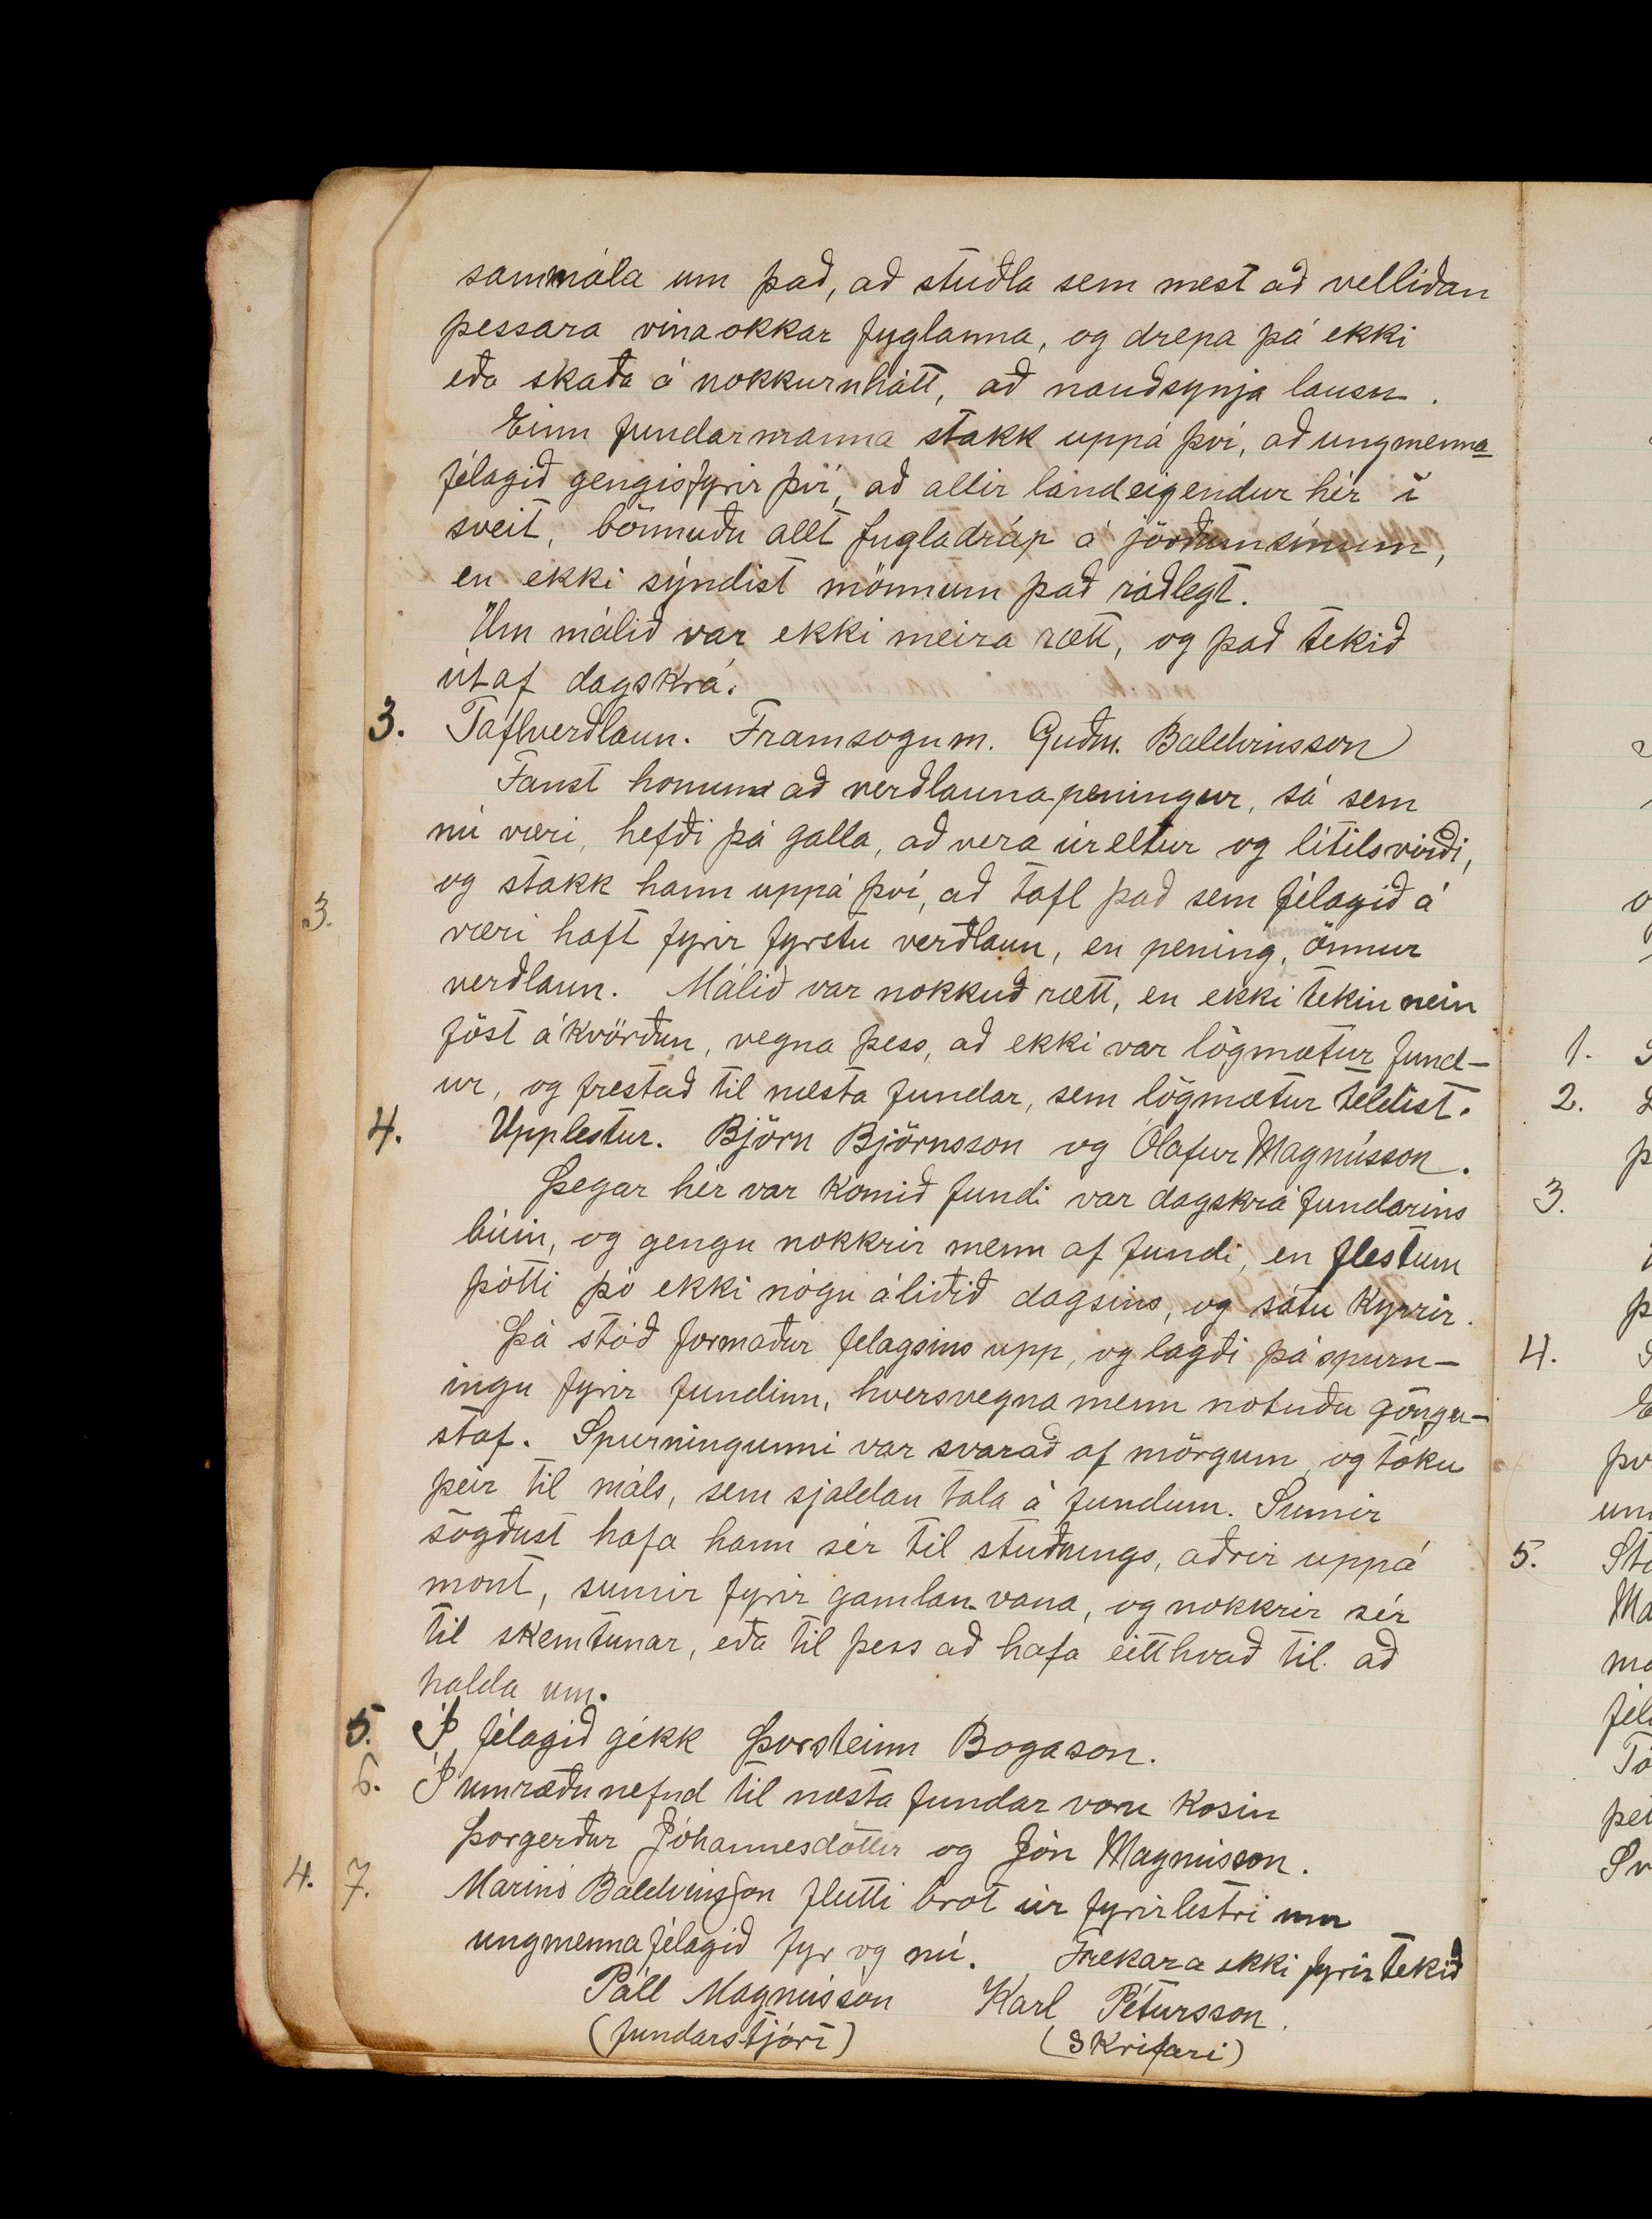 sammála um það, að stuðla sem mest að vellíðan
þessara vina okkar fuglanna, og drepa þá ekki
eða skaða á nokkurnhátt, að nauðsynja lausu.
Einn fundarmanna stakk uppá því, að ungmenna
félagið gengis fyrir því, að allir landeigendur hér í
sveit, bönnuðu allt fugladráp á jörðum sínum,
en ekki sýndist mönnum það ráðlegt.
Um málið var ekki meira rætt, og það tekið
útaf dagskrá.
3. Taflverðlaun. Framsogum. Guðm. Baldvinsson
Fanst honum að verðlaunapeningur, sá sem
nú væri, hefði þá galla, að vera úreltur og lítilsvirði,
og stakk hann uppá því, að tafl það sem félagið á
3.
væri haft fyrir fyrstu verðlaun, en pening, önnur
verðlaun. Málið var nokkuð rætt, en ekki tekin nein
föst ákvörðun, vegna þess, að ekki var lögmætur fund-
ur, og frestað til næsta fundar, sem lögmætur teldist.
4. Upplestur. Björn Björnsson og Ólafur Magnússon.
Þegar hér var komið fundi var dagskrá fundarins
búin, og gengu nokkrir menn af fundi, en flestum
þótti þó ekki nógu áliðið dagsins, og sátu kyrrir.
Þá stóð formaður felagsins upp, og lagði þá spurn-
ingu fyrir fundinn, hversvegna menn notuðu göngu-
staf. Spurningunni var svarað af mörgum, og tóku
þeir til máls, sem sjaldan tala á fundum. Sumir
sögðust hafa hann sér til stuðnings, aðrir uppá
mont, sumir fyrir gamlan vana, og nokkrir sér
til skemtunar, eða til þess að hafa eitthvað til að
halda um.
5. Í félagið gékk Þorsteinn Bogason.
6. Í umræðunefnd til næsta fundar voru kosin
Þorgerður Jóhannesdóttir og Jón Magnússon.
4. 7. Marinó Baldvinsson flutti brot úr fyrirlestri um
ungmennafélagið fyr og nú. Frekara ekki fyrirtekið
Páll Magnússon Karl Pétursson.
(fundarstjóri) (skrifari)
1.
2.
3.
4.
5.